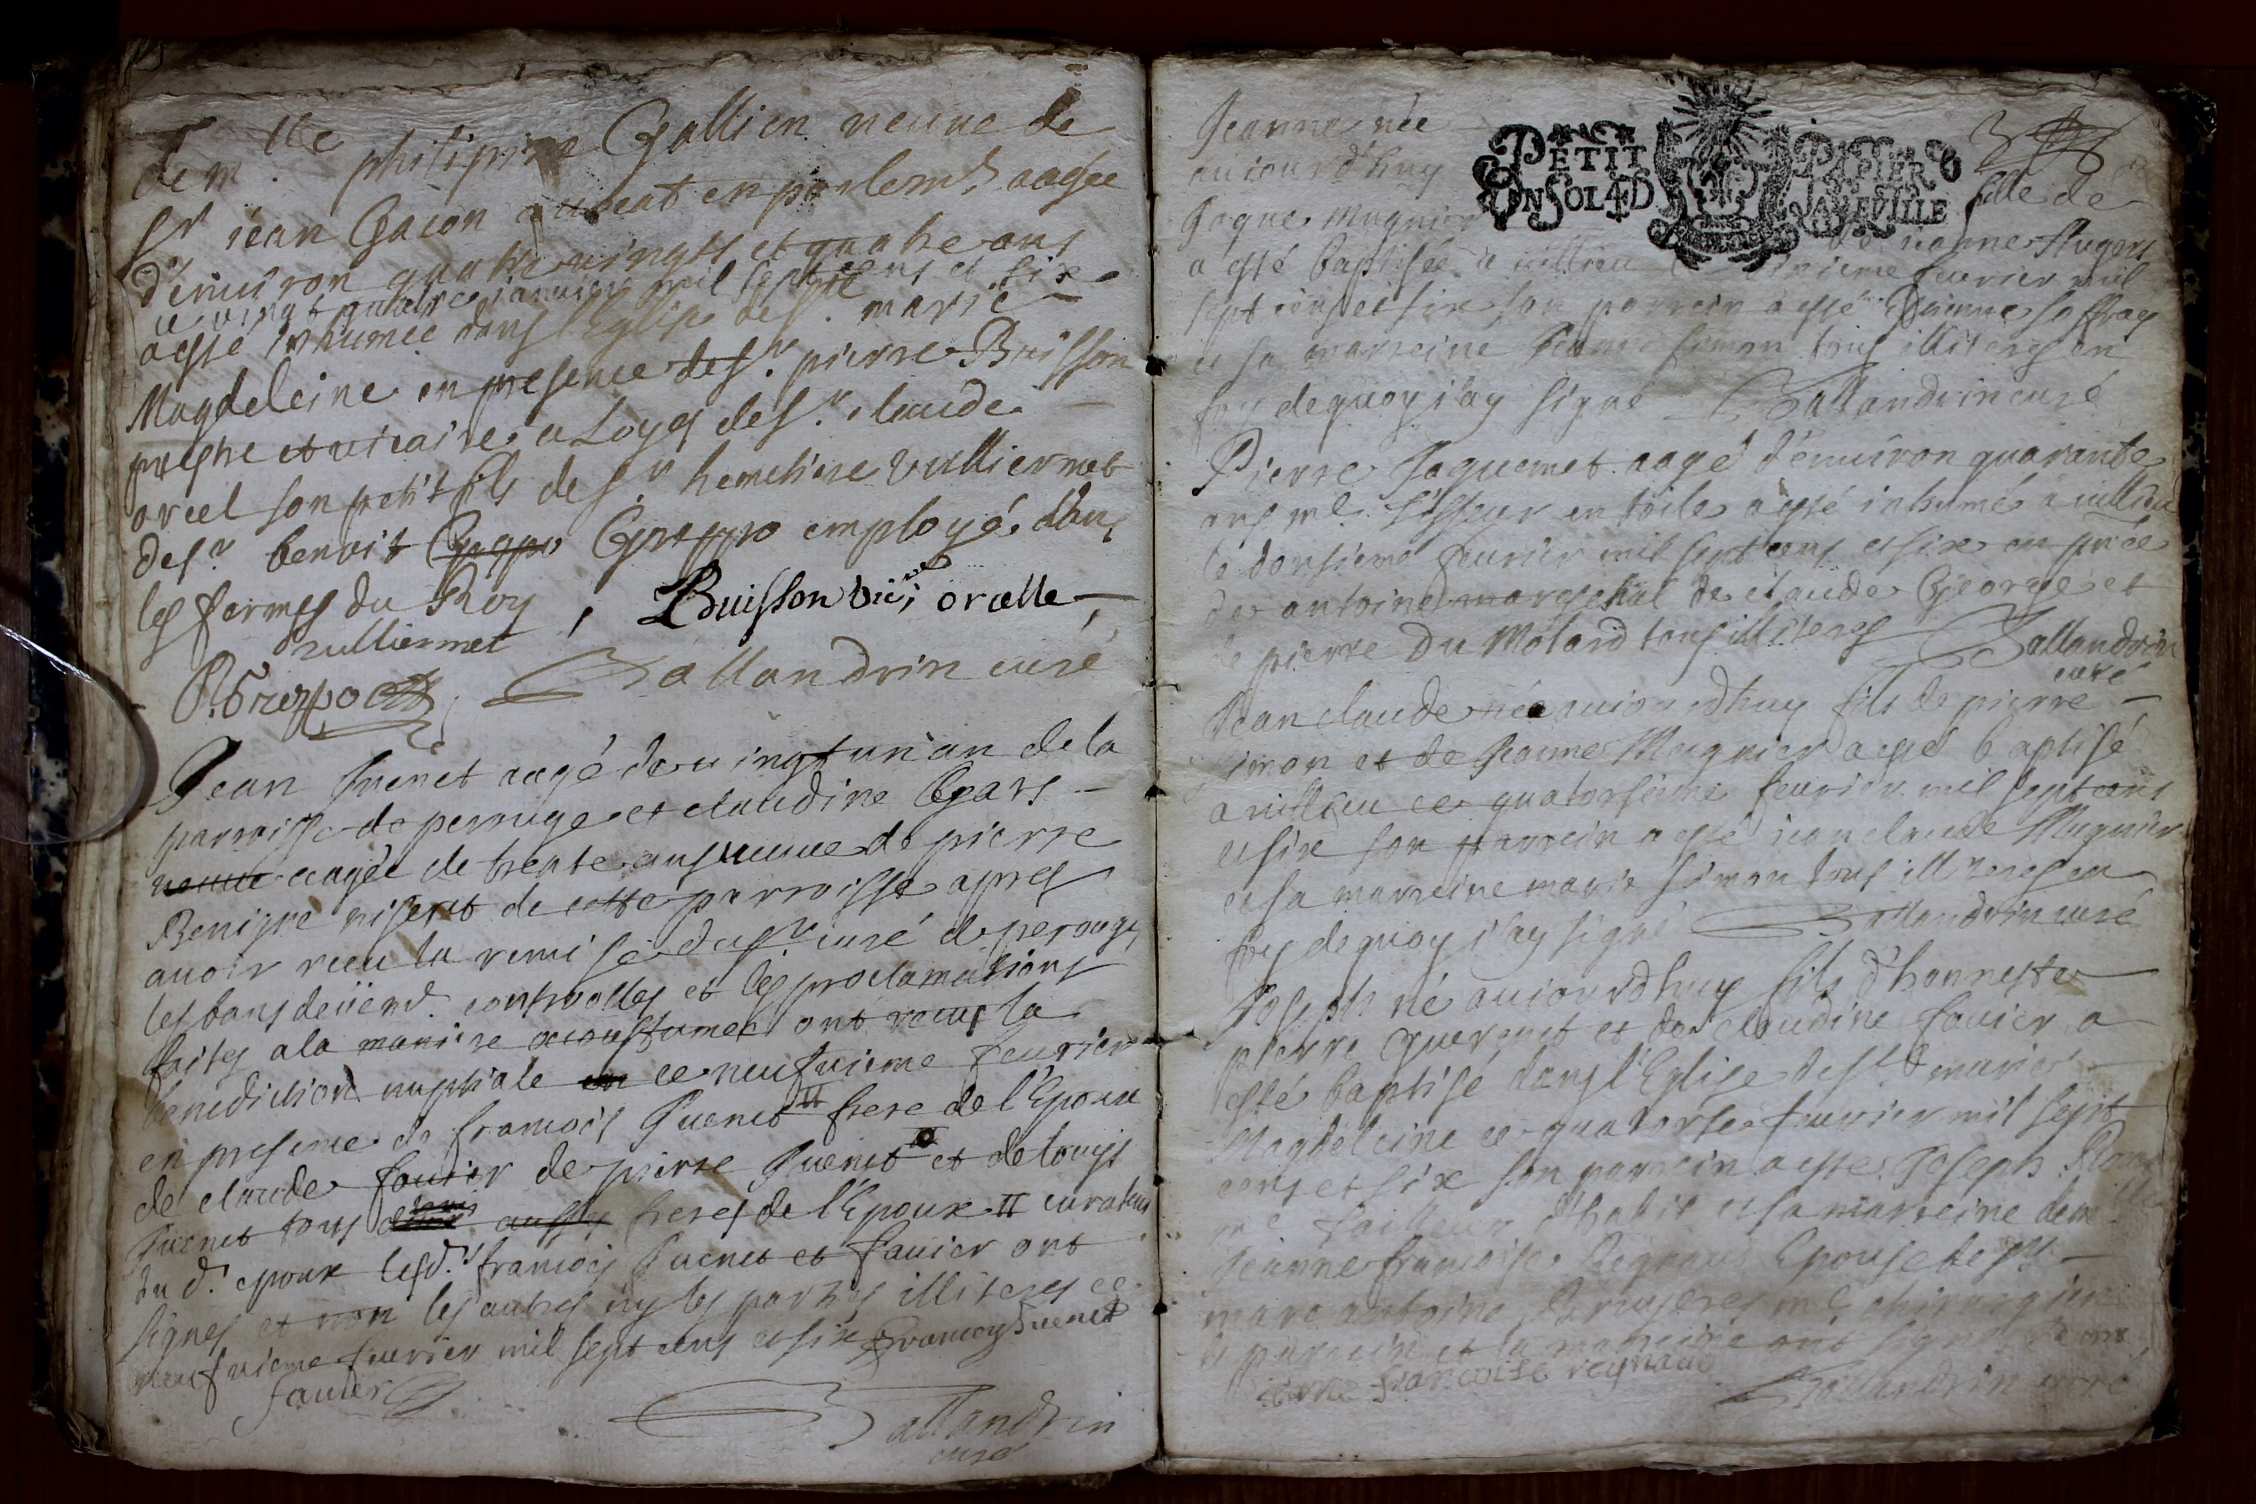 dem.lle philipine Gallien veuve de
Sr jean Gacon avocat en parlemt aagée
d'environ quatre vingts et quatre ans
ce vingt quatre janvier mil sept cens et six
a esté inhumée dans l'Eglise de Ste marie
Magdeleine en presence de Sr. pierre Buisson
prestre et vicaire a Loyes de Sr. claude
orcel son petit fils de Sr hemeliere vulliermet
de Sr benoit Greppo employé dans
les fermes du Roy
vulliermet
Buisson vic; orcelle
B. Greppo
Ballandrin curé
Jean Suenet aagé de vingt un an de la
parroisse de perouge et claudine
veuve aagée de trente ans veuve de pierre
Benigne de cette parroisse apres
avoir receu la remise du Sr curé de perouge
les bans controolles et les proclamations
faites a la maniere accoustumée ont receu la
benediction nuptiale ce neufvieme fevrier
en presence de francois Suenet II frere de l'Epoux
de claude favier de pierre Suenet et de louys
Suenet tous freres de l'Epoux II curateur
du d. epoux lesd. francois Suenet et favier ont
signes et non les autres ny les parties illiteres ce
neufvieme fevrier mil sept cens et six Francoy Suenet
favier
Ballandrin
curé
PETIT PAPIER
UN SOL 4 D
Jeanne née
aujourd'huy
fille de
Jaque Mugnier
de jeanne
a esté baptisée a villieu fevrier mil
sept cens et six son parrein a esté
et sa marreine simon tous illiteres en
foy de quoy j'ay signé Ballandrin curé
Pierre Jaquemet aagé d'environ quarante
ans me tisseur en toile a esté inhumé a villieu
le fevrier mil sept cens et six en pñce
de antoine mareschal de claude George et
de pierre Du Molard tous illiteres Ballandrin
curé
Jean claude né aujourdhuy fils de pierre
simon et de Jeanne Mugnier a esté baptisé
a villieu ce quatorsieme fevrier mil sept cens
et six son parrein a esté jean claude Mugnier
et sa marreine marie simon tous illiteres en
foy de quoy j'ay signé Ballandrin curé
Joseph né aujourdhuy fils d'honneste
pierre Querenet et de claudine favier a
esté baptisé dans l'Eglise de Ste marie
Magdeleine ce quatorse fevrier mil sept
cens et six son parrein a esté Joseph
me tailleur d'habit et sa marreine demlle
Jeanne francoise Regnaud Epouse de Sr
marc antoine me chirurgien
le parrein et la marreine ont signé
jeanne francoise reynaud
Ballandrin curé